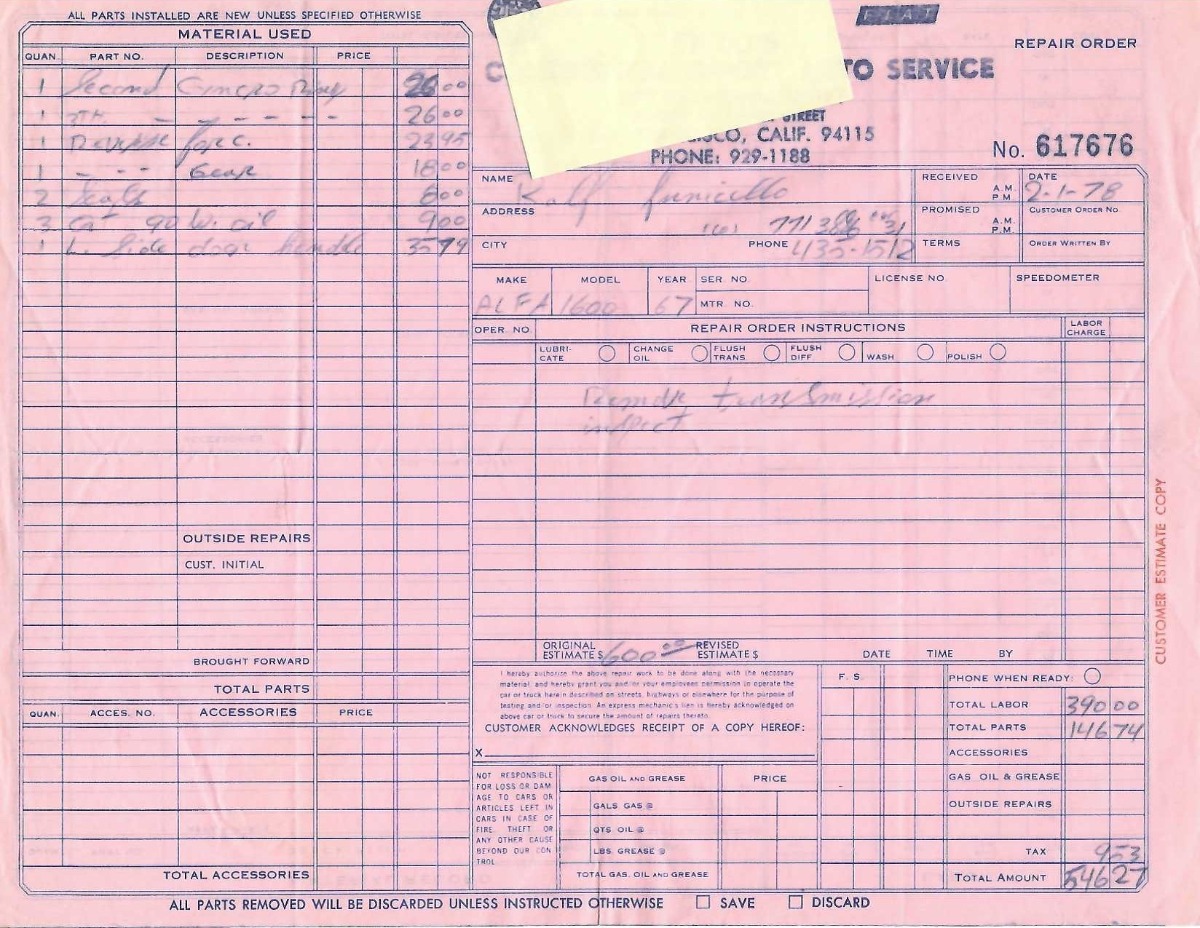 ALL PARTS INSTALLED ARE NEW UNLESS SPECIFIED OTHERWISE
MATERIAL USED
QUAN. PART NO. DESCRIPTION PRICE
1 Second Cincro Ring 26 00
1 3TH. - - - - - - 26 00
1 Reverse forc. 23 95
1 - - - Gear 18 00
2 Seals 6 00
3 QT 90 W. oil 9 00
1 L. Side door handle 35 79
OUTSIDE REPAIRS
CUST. INITIAL
BROUGHT FORWARD
TOTAL PARTS
QUAN. ACCES. NO. ACCESSORIES PRICE
TOTAL ACCESSORIES
FIAT
REPAIR ORDER
TO SERVICE
STREET
CISCO, CALIF. 94115
PHONE: 929-1188
No. 617676
NAME Ralf funicello
RECEIVED A.M. P.M.
DATE 2-1-78
ADDRESS
771
PROMISED A.M. P.M.
CUSTOMER ORDER NO.
CITY PHONE 435-1512
TERMS
ORDER WRITTEN BY
MAKE MODEL YEAR SER. NO. LICENSE NO. SPEEDOMETER
ALFA 1600 67 MTR. NO.
OPER. NO. REPAIR ORDER INSTRUCTIONS LABOR CHARGE
LUBRI-CATE CHANGE OIL FLUSH TRANS FLUSH DIFF WASH POLISH
Remove transmission
inspect
ORIGINAL ESTIMATE $ 600 00 REVISED ESTIMATE $ DATE TIME BY
I hereby authorize the above repair work to be done along with the necessary
material and hereby grant you and/or your employees permission to operate the
car or truck herein described on streets, highways or elsewhere for the purpose of
testing and/or inspection. An express mechanic's lien is hereby acknowledged on
above car or truck to secure the amount of repairs thereto.
CUSTOMER ACKNOWLEDGES RECEIPT OF A COPY HEREOF:
X
F. S
PHONE WHEN READY:
TOTAL LABOR 390 00
TOTAL PARTS 146 74
ACCESSORIES
GAS OIL & GREASE
OUTSIDE REPAIRS
TAX 9 53
TOTAL AMOUNT 546 27
NOT RESPONSIBLE
FOR LOSS OR DAM
AGE TO CARS OR
ARTICLES LEFT IN
CARS IN CASE OF
FIRE THEFT OR
ANY OTHER CAUSE
BEYOND OUR CON
TROL
GAS OIL AND GREASE PRICE
GALS. GAS @
QTS. OIL @
LBS. GREASE @
TOTAL GAS, OIL AND GREASE
ALL PARTS REMOVED WILL BE DISCARDED UNLESS INSTRUCTED OTHERWISE SAVE DISCARD
CUSTOMER ESTIMATE COPY